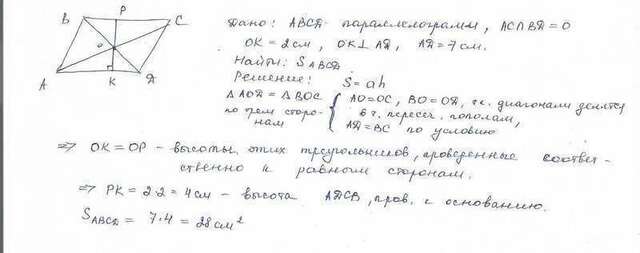 B P C
O
A K Д
Дано: ABCД - параллелограмм, AC∩BД=O
OK = 2см, OK⊥AД, AД=7см.
Найти: S ABCД
Решение: S=ah
ΔAOД = ΔBOC { AO=OC, BO=OД, т.к. диагонали делятся
по трем сторо- в т. пересеч. пополам,
нам AД=BC по условию
⇒ OK=OP - высоты этих треугольников, проведенные соответ-
ственно к равным сторонам.
⇒ PK=2·2=4см - высота AДCB, пров. к основанию.
S ABCД = 7·4=28см²